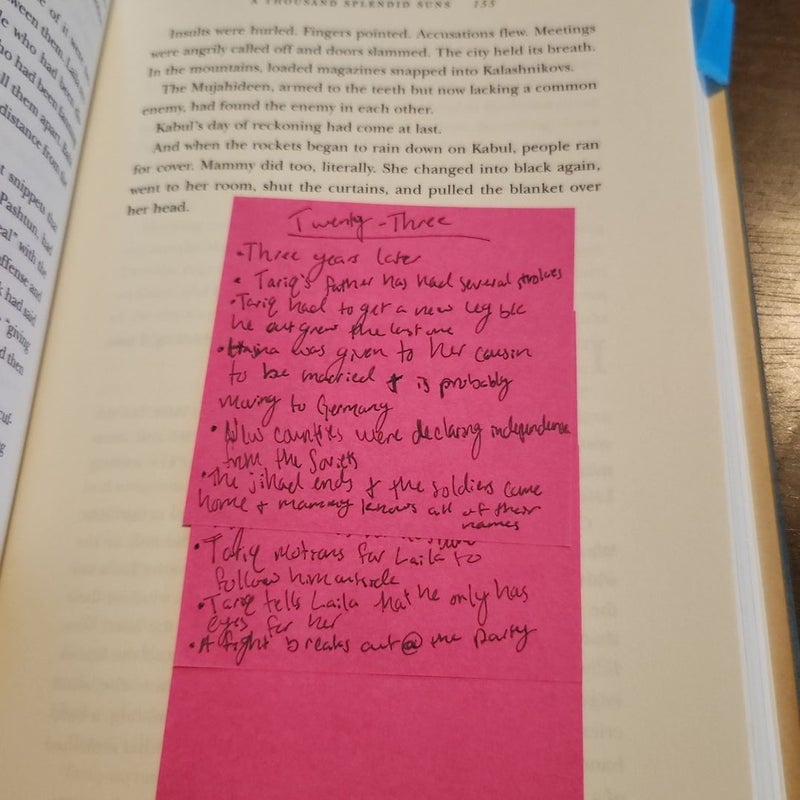 A THOUSAND SPLENDID SUNS 155
between them. Laila
who had been
who had been
all them apart.
distance from the
snippets that
Pashtun, had
with the
offense and
had said
"giving
nd then
Insults were hurled. Fingers pointed. Accusations flew. Meetings
were angrily called off and doors slammed. The city held its breath.
In the mountains, loaded magazines snapped into Kalashnikovs.
The Mujahideen, armed to the teeth but now lacking a common
enemy, had found the enemy in each other.
Kabul's day of reckoning had come at last.
And when the rockets began to rain down on Kabul, people ran
for cover. Mammy did too, literally. She changed into black again,
went to her room, shut the curtains, and pulled the blanket over
her head.
Twenty-Three
•Three years later
• Tariq's father has had several strokes
•Tariq had to get a new leg b/c
he outgrew the last one
• was given to her cousin
to be married & is probably
moving to Germany
• counties were declaring independence
from the Soviets
•The jihad ends & the soldiers came
home & mammy knows all of their
names
•Tariq motions for Laila to
follow him outside
•Tariq tells Laila that he only has
eyes for her
•A fight breaks out @ the party